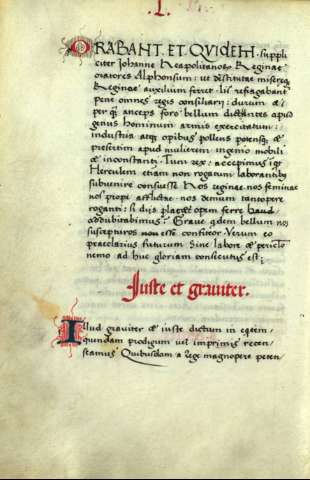 .L.
ORABANT. ET. QVIDEM. suppli
citer Johanne Neapolitanos Reginae
oratores Alphonsum: ut destitutae miserequae
Reginae auxilium ferret. Iis refragabant
pene omnes regis consiliarij: durum et
per quam anceps foro bellum dictantes apud
genus hominum armis exercitatum:
industria atque opibus pollens potensque et
presertim apud mulierem ingenio mobili
et inconstanti. Tum rex: accepimus inquit
Herculem etiam non rogatum laborantibus
subvenire consuesse. Nos reginae nos feminae
nos prope afflictae nos demum tantopere
roganti: si dijs placet opem ferre haud
addubitabimus? Grave quidem bellum nos
suscepturos non esse confiteor. Verum eo
praeclarius futurum. Sine labore et periclo
nemo ad huc gloriam consecutus est;
Juste et graviter.
Illud graviter et iuste dictum in equitem
quendam prodigum vel imprimis recen
seamus. Quibusdam a rege magnopere peten